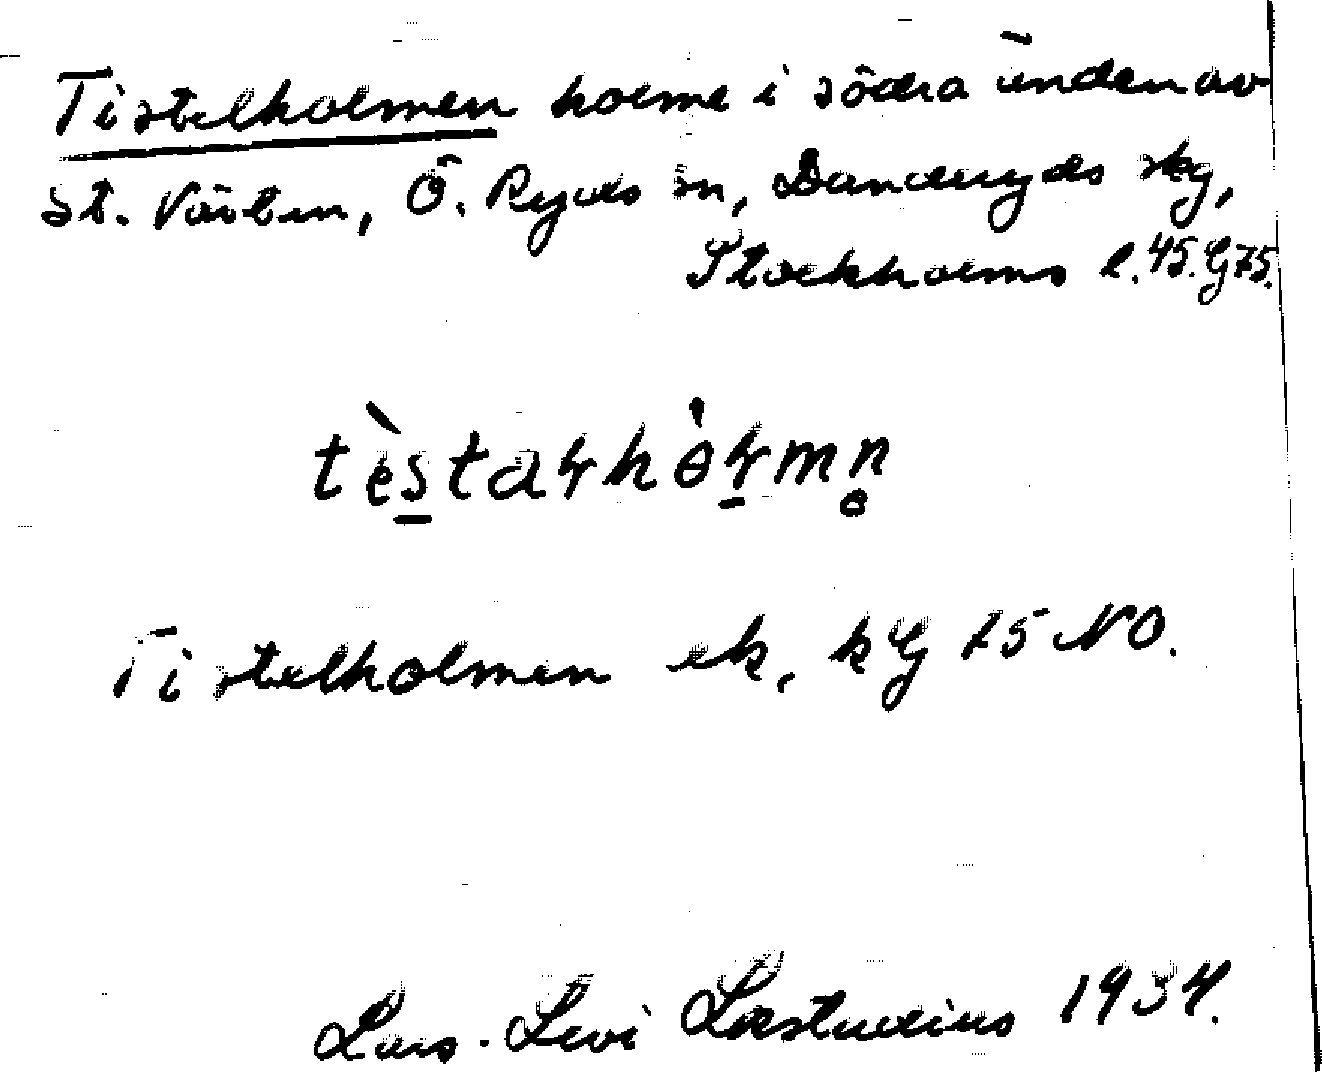 Tistelholmen holme i södra änden av
St. Värtan, Ö. Ryds sn, Danderyds skg,
Stockholms l. 45. G 75.
Tistelholmen ek. kG 75 NO.
Lars-Levi Læstadius 1934.